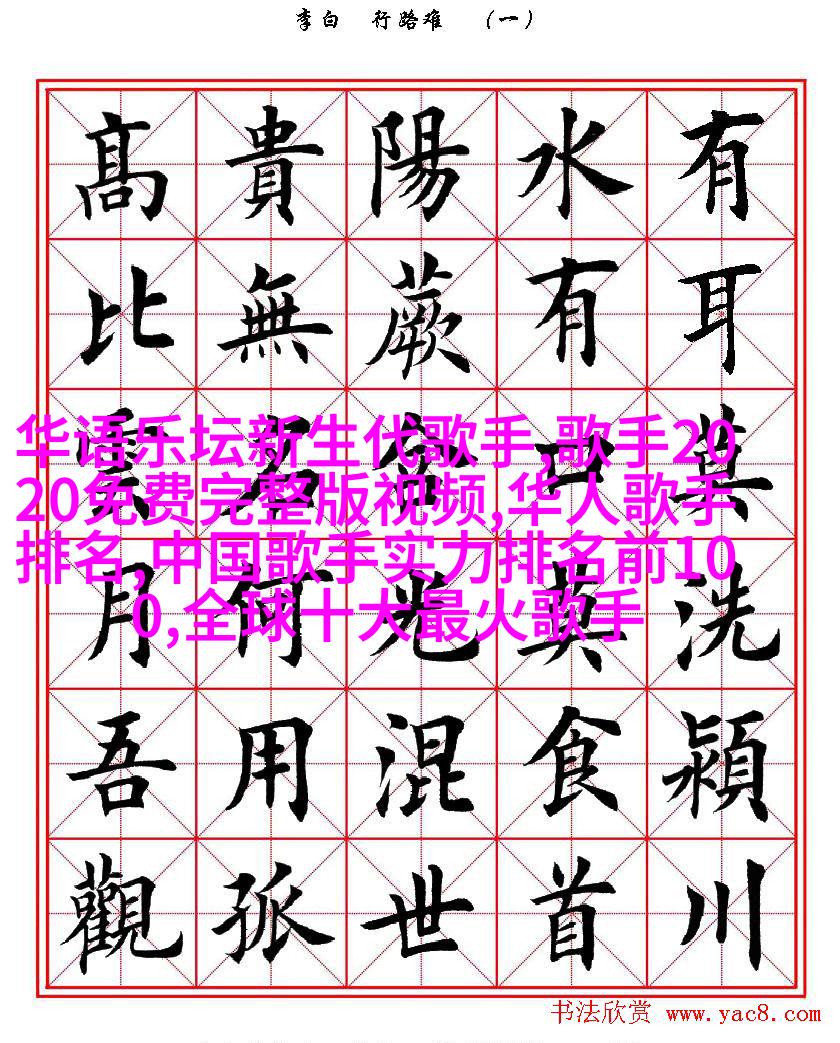 李白 行路难 （一）
有耳莫洗潁川
水有口莫食首
陽蕨含光混世
貴無名何用孤
髙比雲月吾觀
华语乐坛新生代歌手,歌手20
20免费完整版视频,华人歌手
排名,中国歌手实力排名前10
0,全球十大最火歌手
书法欣赏 www.yac8.com